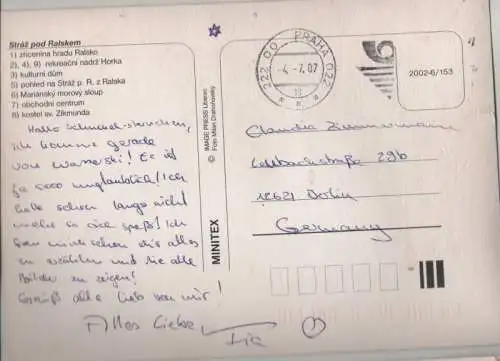 Stráž pod Ralskem
1) zřícenina hradu Ralsko
2), 4), 9) rekreační nádrž Horka
3) kulturní dům
5) pohled na Stráž p. R. z Ralska
6) Mariánský morový sloup
7) obchodní centrum
8) kostel sv. Zikmunda
Hallo
ich komme gerade
von ! Es ist
ja sooo unglaublich! Ich
habe schon lange nicht
mehr so viel Spaß! Ich
freu mich schon dir alles
zu erzählen und die alle
Bilder zu zeigen!
Grüß alle lieb von mir!
Alles Liebe,
© IMAGE PRESS Liberec
Foto Milan Drahoňovský
MINITEX
222 00 PRAHA 022
-4.-7.07
2002-6/153
Claudia Zimmermann
29b
Berlin
Germany